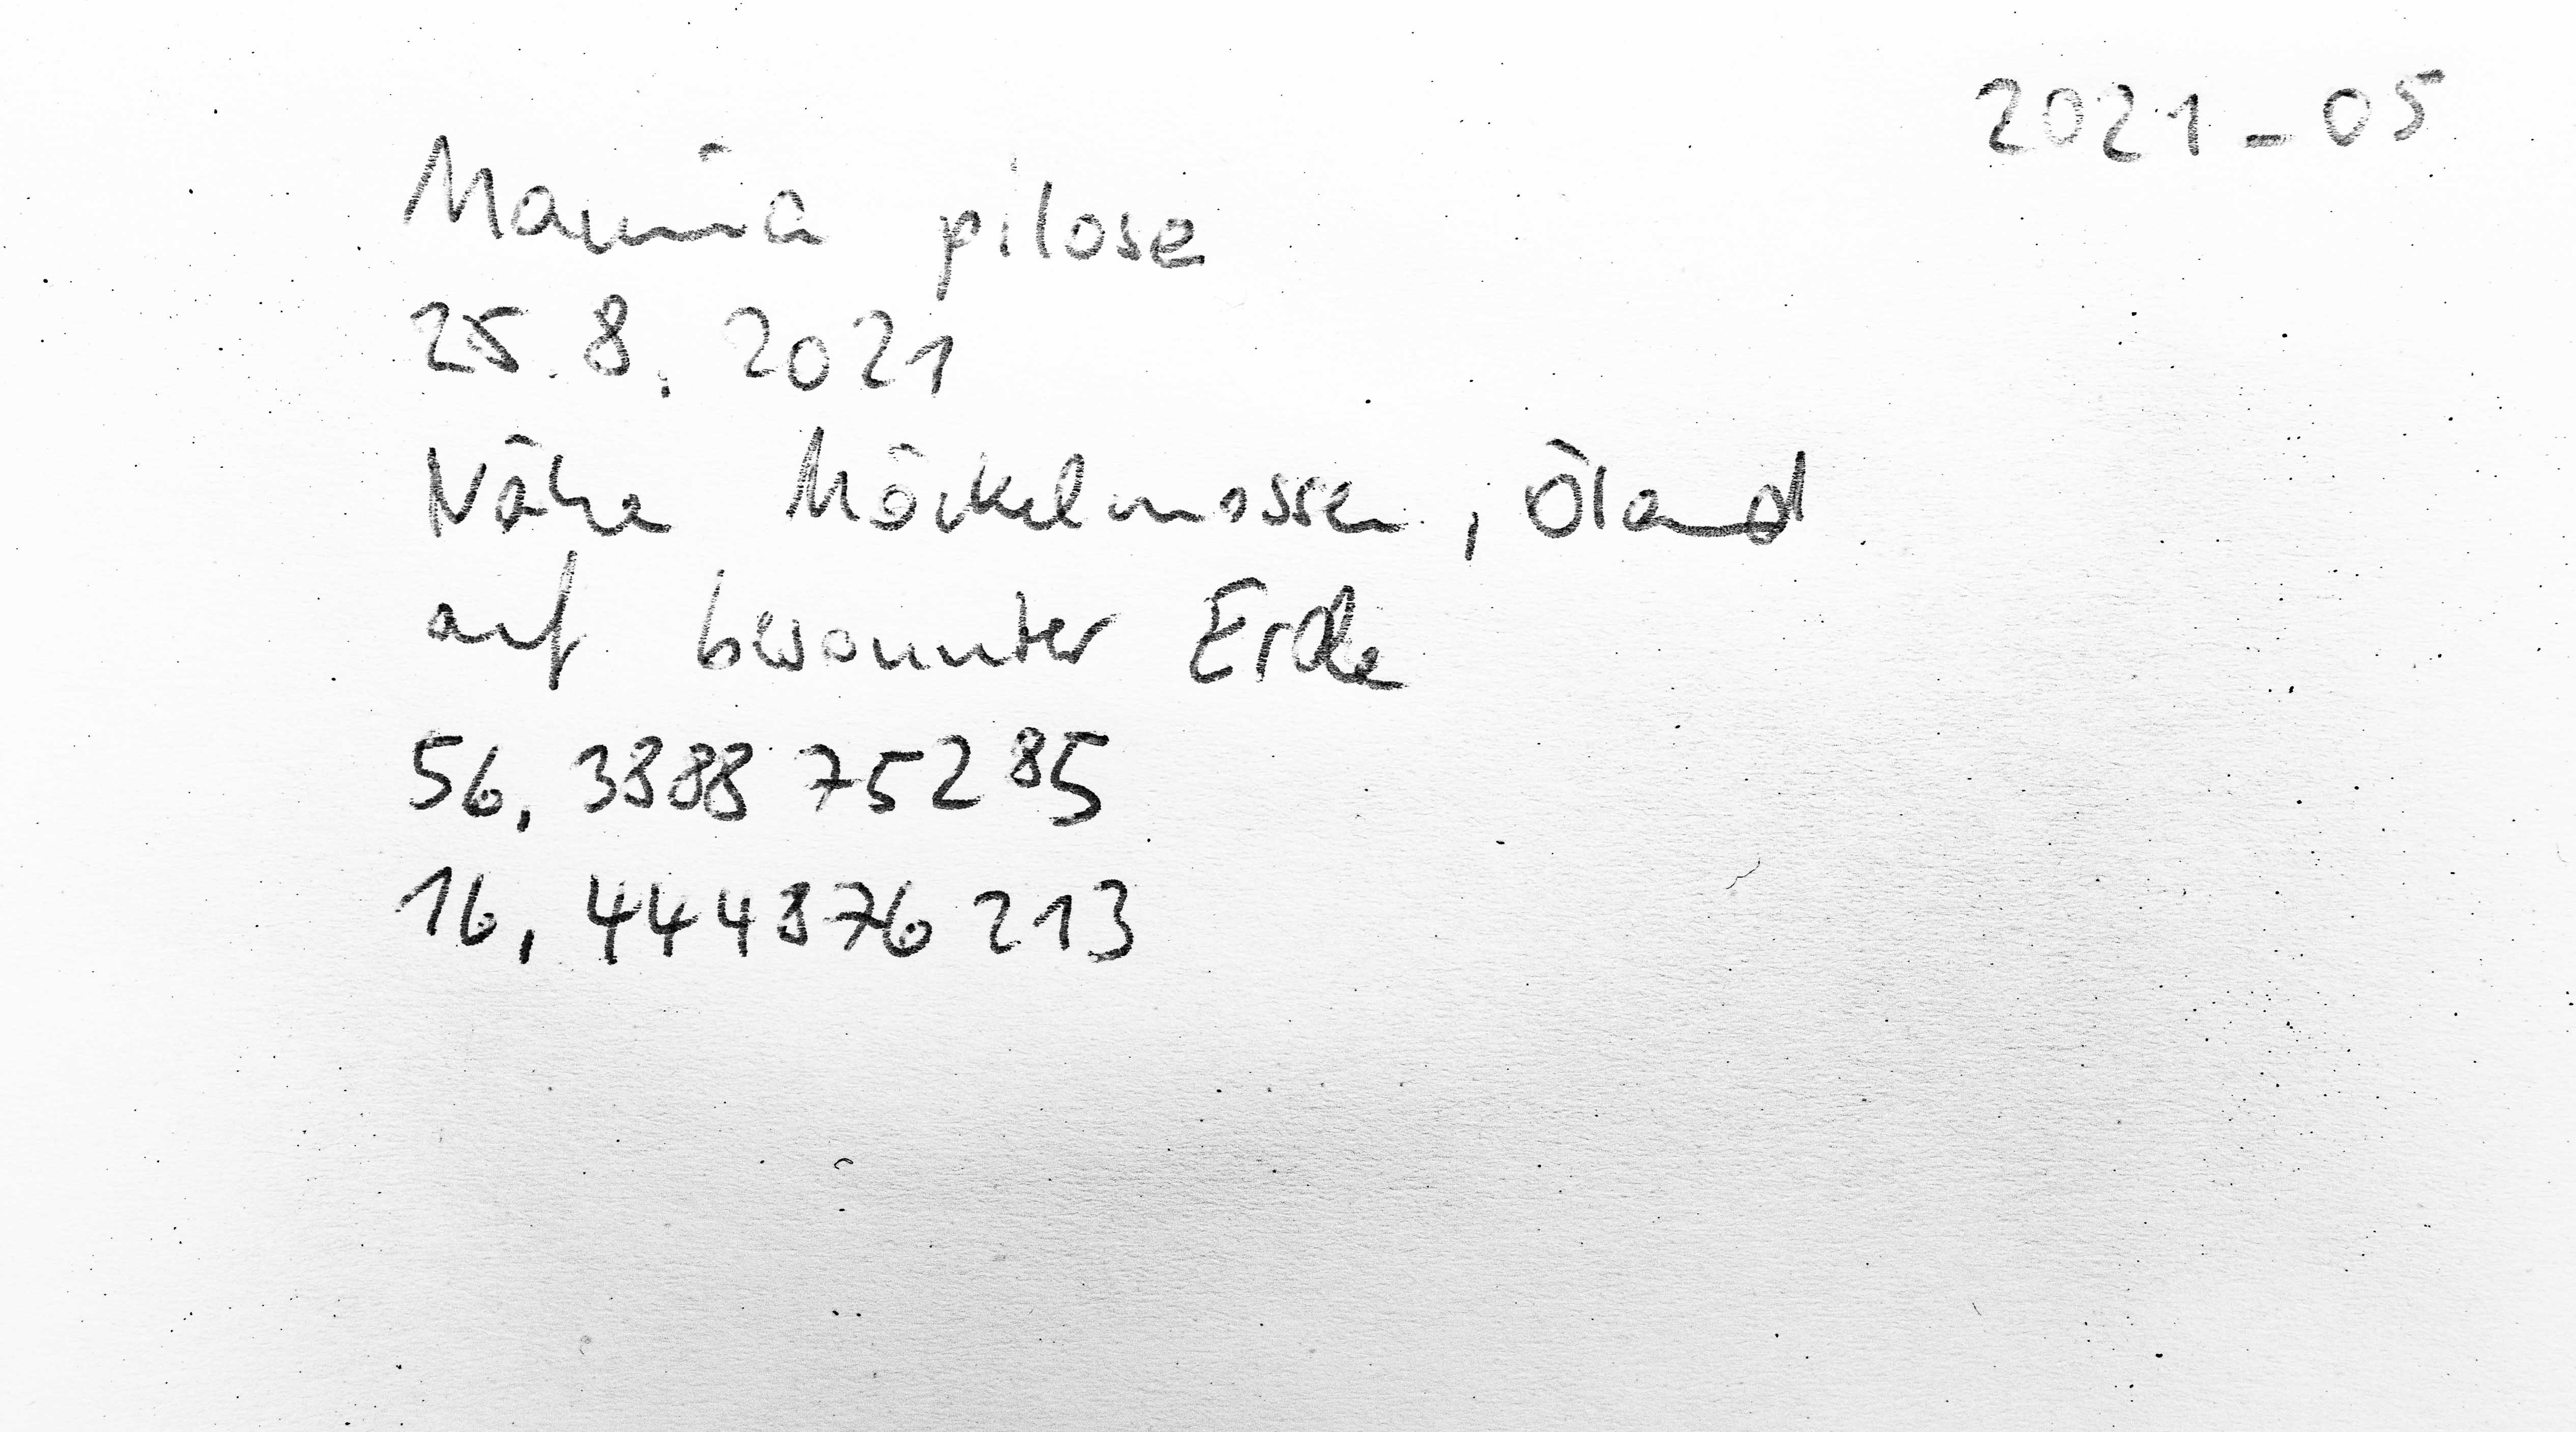 2021-05
Mannia pilose
25.8.2021
Nähe Möckelmossen, Öland
auf besonnter Erde
56,3388875285
16,444376213